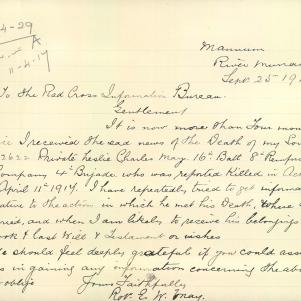 4-29
A
11-4-17
Mannum
River Murray
Sept 25 19
To The Red Cross Information Bureau.
Gentlemen
It is now more than Four mon
I received the sad news of the Death of my Son
2622 Private Leslie Charles May. 16th Batt 8th Reinforc
Company 4th Brigade who was reported Killed in Acti
April 11th 1917. I have repeatedly tried to get informa
ative to the action in which he met his Death, where
ried, and when I am likely to receive his belongings
ook & Last Will & Testament or wishes
We should feel deeply grateful if you could ass
s in gaining any information concerning the abov
oblige Yours Faithfully
Robt. E. W. May.